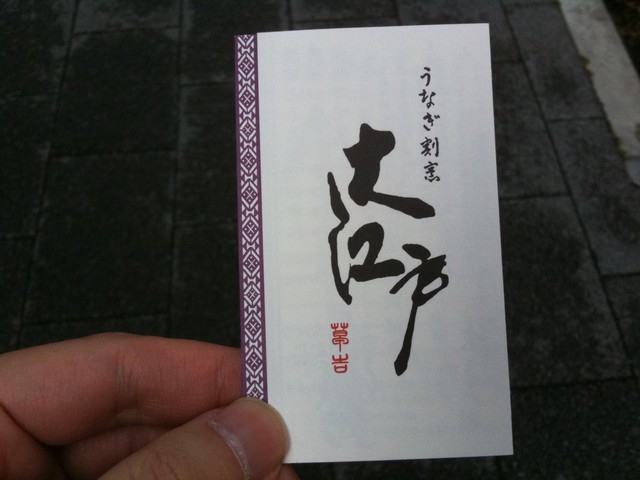 うなぎ割烹
大江戸
草吉